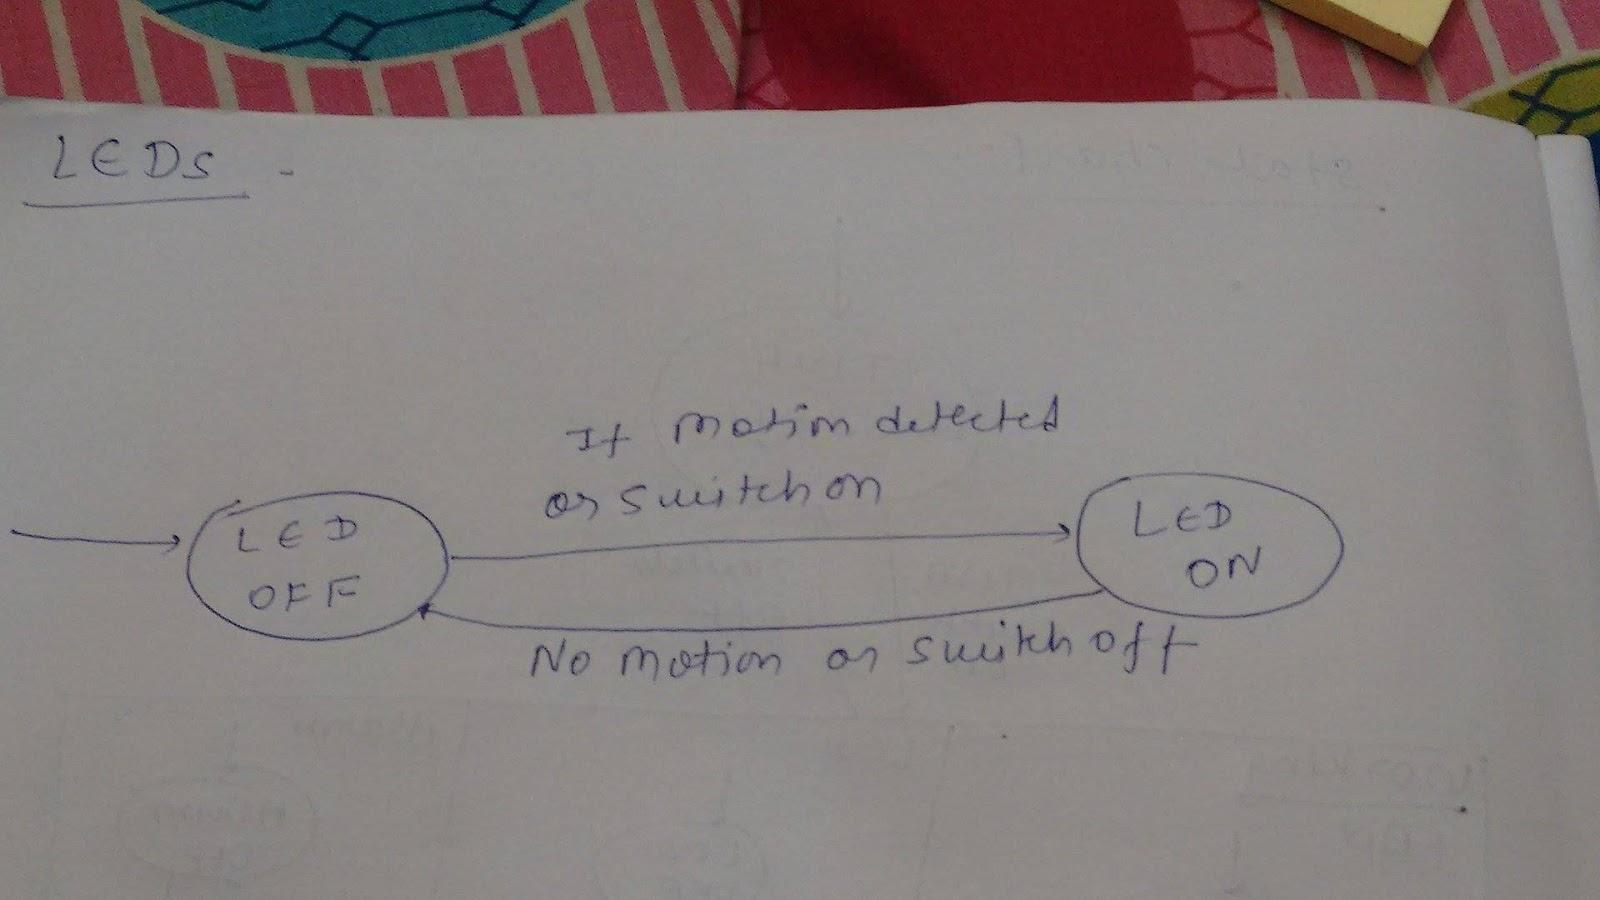 LEDs -
If motion detected
or switch on
LED
OFF
LED
ON
No motion or switch off